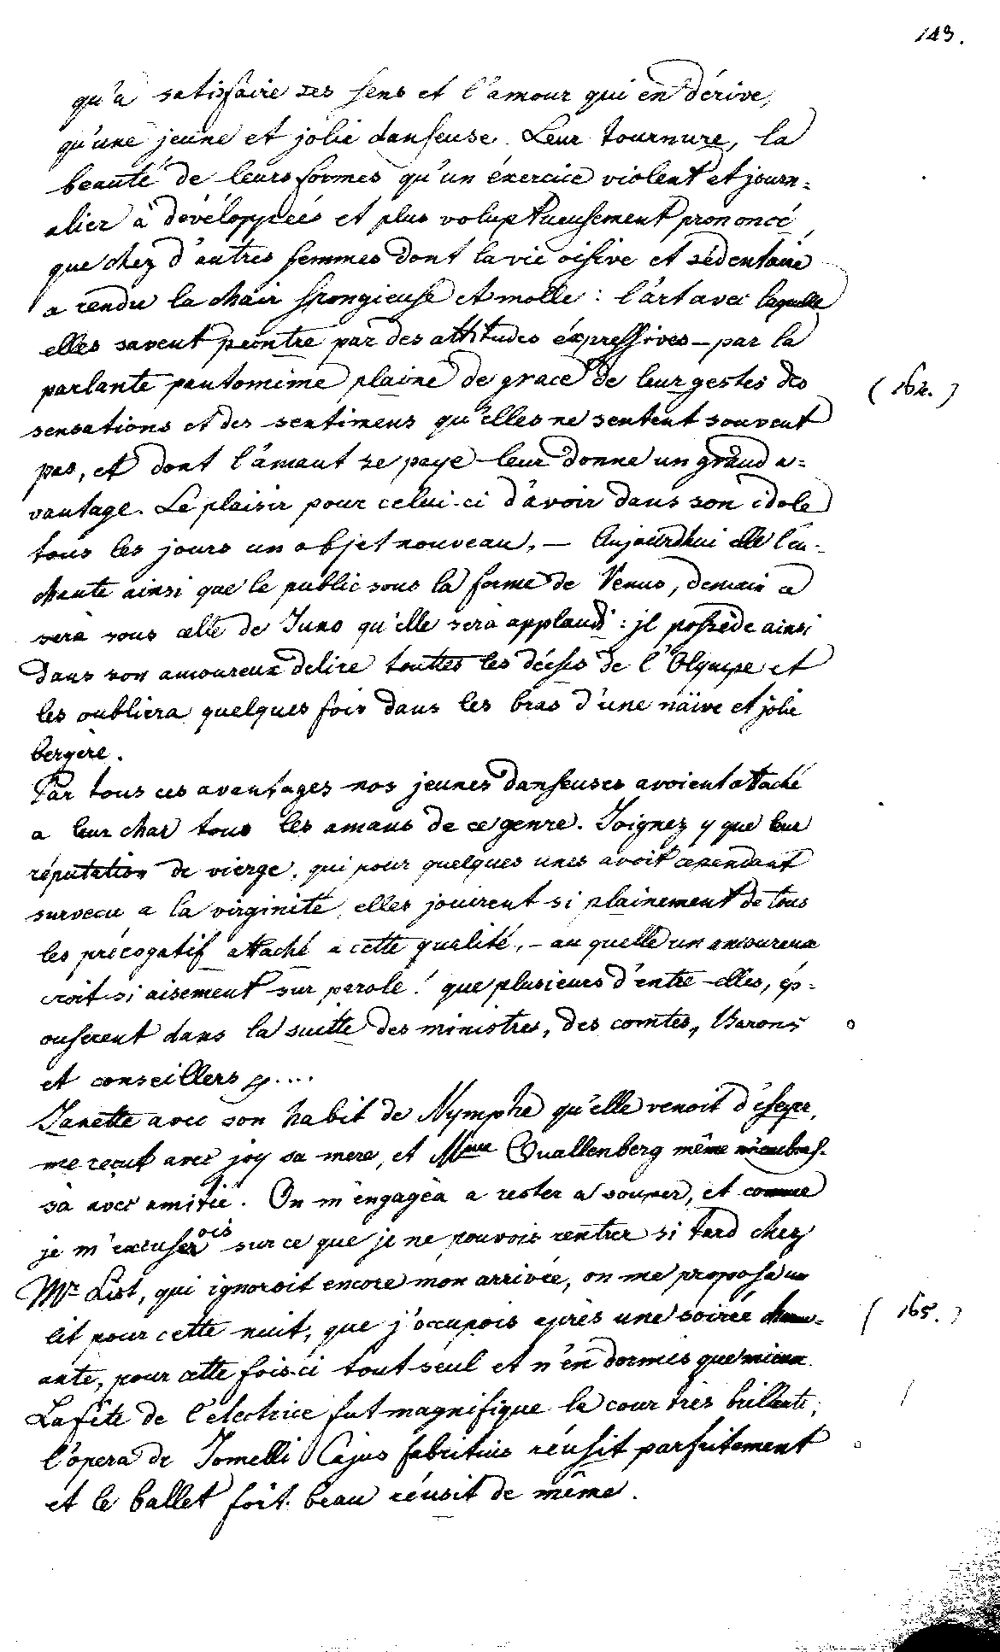 143.
qu'a satisfaire ses sens et l'amour qui en dérive,
qu'une jeune et jolie danseuse. Leur tournure, la
beauté de leurs formes qu'un éxercice violent et journ=
alier a dévéloppéés et plus voluptueusement prononcé,
que chez d'autres femmes dont la vie oisive et sédentaire
a rendu la chair spongieuse et molle : l'art avec laquelle
elles savent peintre par des attitudes éxpressives – par la
parlante pantomime plaine de grace de leur gestes des
(162.)
sensations et des sentimens qu'elles ne sentent souvent
pas, et dont l'amant se paye – leur donne un grand a=
vantage. Le plaisir pour celui-ci d'avoir dans son idole
tous les jours un objet nouveau, – Aujourdhui elle l'en=
chante ainsi que le public sous la forme de Venus, demain ce
sera sous celle de Juno qu'elle sera applaudi : il possède ainsi
dans son amoureux delire touttes les déesses de l'Olympe et
les oubliera quelques fois dans les bras d'une näive et jolie
bergère.
Par tous ces avantages nos jeunes danseuses avoient attaché
a leur char tous les amans de ce genre. Joignez y que leur
réputation de vierge, qui pour quelques unes avoit cependant
survecu a la virginité, elles jouirent si plainement de tous
les précogatif attaché a cette qualité, – au quelle un amoureux
croit si aisement sur parole ! que plusieurs d'entre-elles, ép=
ouserent dans la suitte des ministres, des comtes, Barons
et conseillers ....
Janette avec son habit de Nymphe qu'elle venoit d'éssayer,
me reçut avec joy sa mere, et Mme Quallenberg même m'embras=
sa avec amitié. On m'engagéa a rester a souper, et comme
je m'excuserois sur ce que je ne pouvois rentrer si tard chez
Mr List, qui ignoroit encore mon arrivée, on me proposa un
lit pour cette nuit, que j'occupois après une soirée charm=
(165.)
ante, pour cette fois ci tout seul et n'en dormis que mieux.
La fête de l'électrice fut magnifique la cour très brillante,
l'opera de Jomelli Cajus fabritius réusit parfaitement
et le ballet fort beau réusit de même.